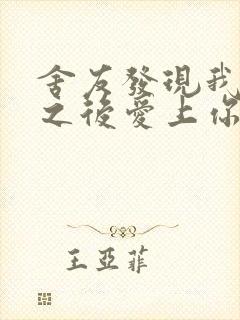 舍友發現我
之後愛上你
王亞菲